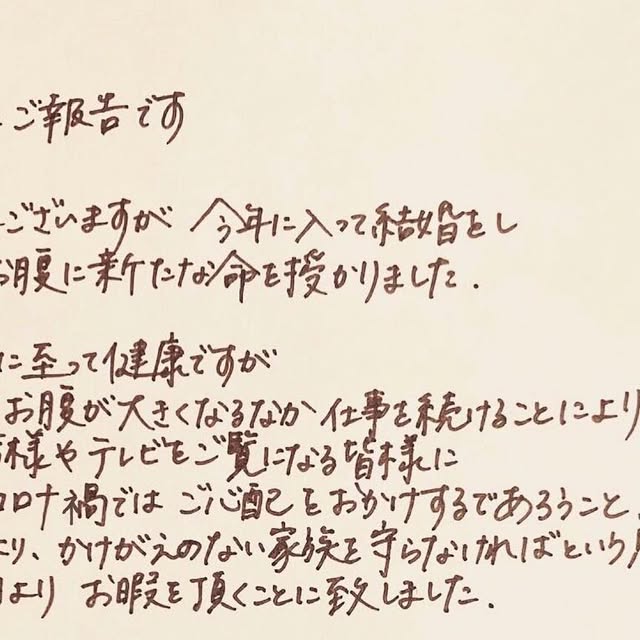 ご報告です
ございますが 今年に入って結婚をし
お腹に新たな命を授かりました.
に至って健康ですが
お腹が大きくなるなか 仕事を続けることにより
様やテレビをご覧になる皆様に
コロナ禍では ご心配をおかけするであろうこと
より、かけがえのない家族を守らなければという
より お暇を頂くことに致しました.